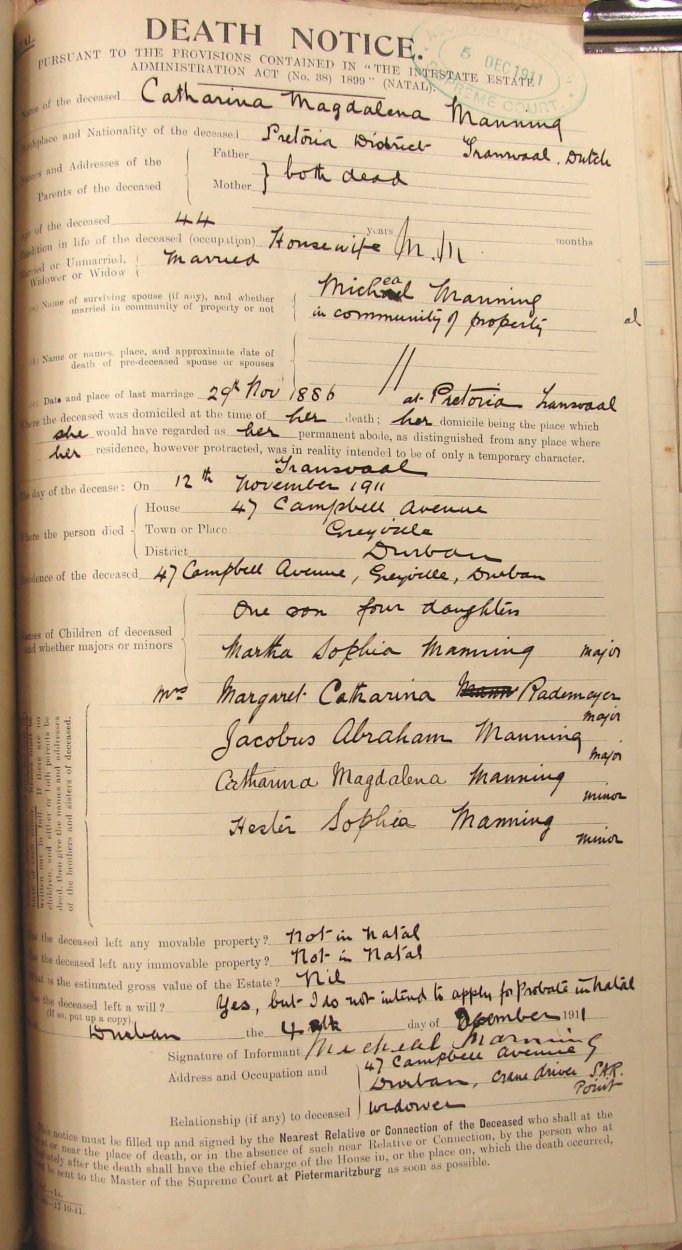 DEATH NOTICE.
PURSUANT TO THE PROVISIONS CONTAINED IN "THE INTESTATE ESTATE
ADMINISTRATION ACT (No. 38) 1899" (NATAL).
5 DEC 1911
SUPREME COURT
Name of the deceased Catharina Magdalena Manning
Birthplace and Nationality of the deceased Pretoria District Transvaal, Dutch
Names and Addresses of the Parents of the deceased
Father
Mother
both dead
Age of the deceased 44 years months
Condition in life of the deceased (occupation) Housewife
Married or Unmarried, Widower or Widow Married
Name of surviving spouse (if any), and whether married in community of property or not
Micheal Manning
in community of property
al
(b) Name or names, place, and approximate date of death of pre-deceased spouse or spouses //
(c) Date and place of last marriage 29th Nov 1886 at Pretoria Transvaal
Where the deceased was domiciled at the time of her death; her domicile being the place which
she would have regarded as her permanent abode, as distinguished from any place where
her residence, however protracted, was in reality intended to be of only a temporary character.
Transvaal
The day of the decease: On 12th November 1911
Where the person died
House 47 Campbell Avenue
Town or Place Greyville
District Durban
Residence of the deceased 47 Campbell Avenue, Greyville, Durban
Names of Children of deceased and whether majors or minors
One son four daughters
Martha Sophia Manning major
Mrs Margaret Catharina Mann Rademeyer major
Jacobus Abraham Manning major
Catharina Magdalena Manning minor
Hester Sophia Manning minor
written out in full. If there are no
children, and either or both parents be
dead, then give the names and addresses
of the brothers and sisters of deceased.
Has the deceased left any movable property? Not in Natal
Has the deceased left any immovable property? Not in Natal
What is the estimated gross value of the Estate? Nil
Has the deceased left a will? Yes, but I do not intend to apply for Probate in Natal
(If so, put up a copy)
Durban the 4th day of December 1911
Signature of Informant Micheal Manning
Address and Occupation and
47 Campbell Avenue
Durban, Crane driver S.A.R.
Point
Relationship (if any) to deceased widower
This notice must be filled up and signed by the Nearest Relative or Connection of the Deceased who shall at the
at or near the place of death, or in the absence of such near Relative or Connection, by the person who at
immediately after the death shall have the chief charge of the House in, or the place on, which the death occurred,
and be sent to the Master of the Supreme Court at Pietermaritzburg as soon as possible.
17-10-11.